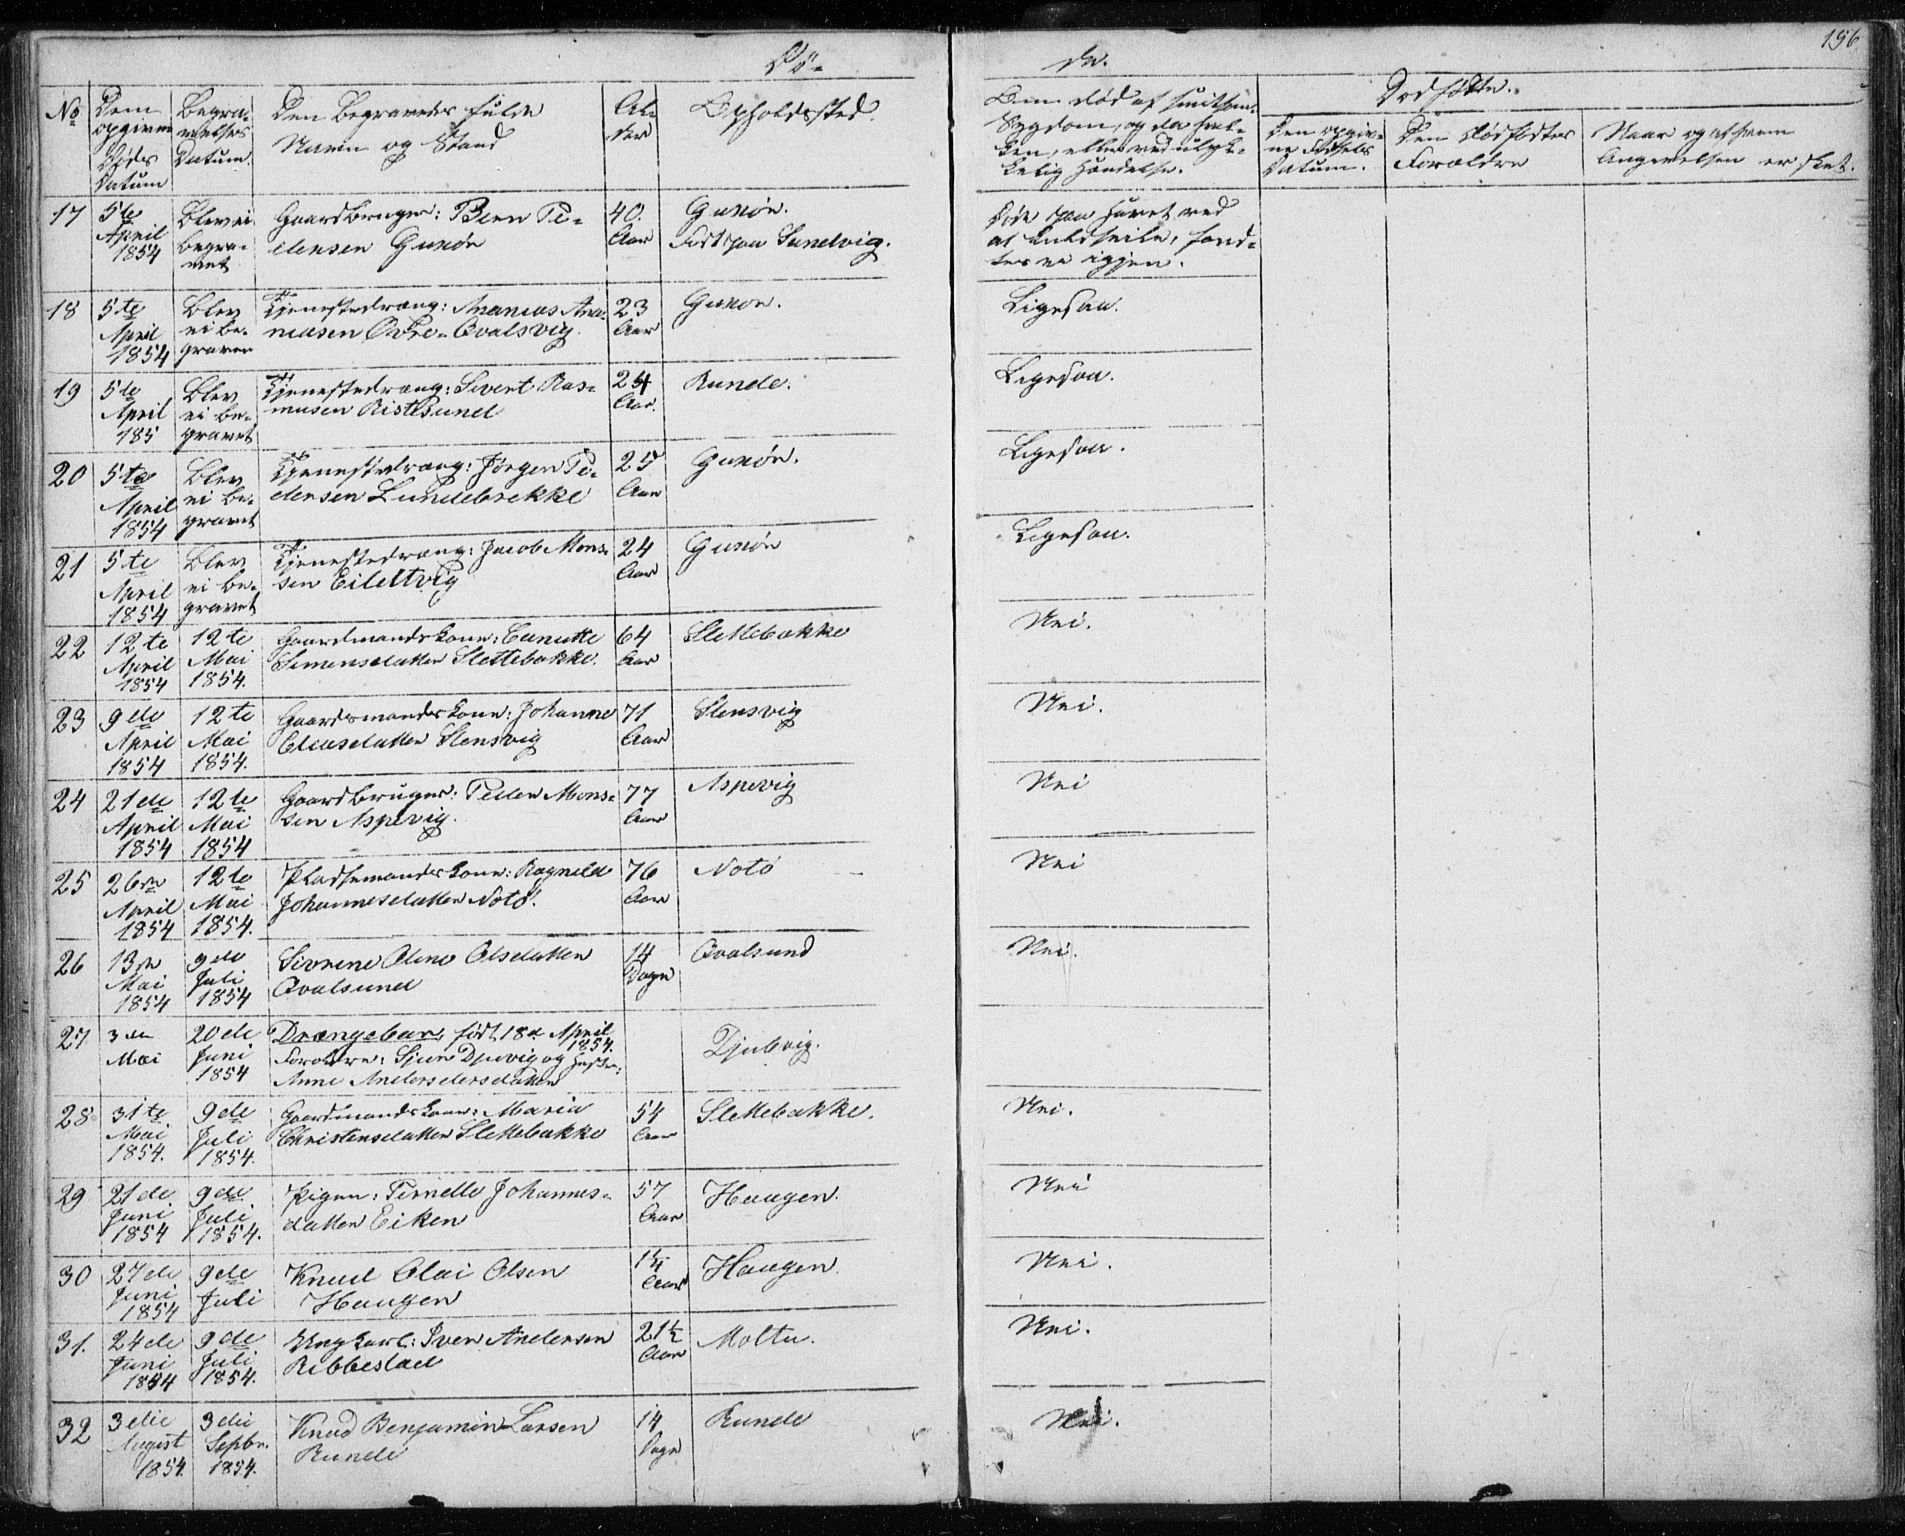 156
Dö-
de.
No
Dem
opgivne
Døds
Datum
Begra-
velses
Datum.
Den Begravedes fulde
Navn og Stand
Al-
der
Opholdssted.
Om død af smitsom
Sygdom, og da hvil-
ken, eller ved ulyk-
kelig Hændelse.
Dødfødte.
Den opgiv-
ne Fødsels
Datum.
Den Dødfødtes
Forældre
Naar og af hvem
Angivelsen er sket.
17
5te
April
1854
Blev ei
begra-
vet
Gaardbruger: Bern Pe-
dersen Guxøn
40.
Aar
Guxøn.
Født paa Sandvig.
Døde paa Havet ved
at kuldseile, fand-
tes ei igjen.
18
5te
April
1854
Blev
ei be-
graven
Tjenestedræng: Ananias Ana-
niasen Øvre-Qvalsvig.
23
Aar
Guxøn.
Ligesaa.
19
5te
April
185
Blev
ei be-
gravet
Tjenestedræng: Sivert Ras-
musen Ristesund
24
Aar.
Runde.
Ligesaa.
20
5te
April
1854
Blev
ei be-
gravet
Tjenestedræng: Jörgen Pe-
dersen Lundebrekke
25
Aar
Guxøn.
Ligesaa.
21
5te
April
1854
Blev
ei be-
gravet
Tjenestedræng: Jacob Mons-
sen Eiletvig
24
Aar
Guxøn
Ligesaa.
22
12te
April
1854
12te
Mai
1854.
Gaardmandskone:
Simensdatter Slettebakke.
64
Aar
Slettebakke
Nei.
23
9de
April
1854
12te
Mai
1854.
Gaardmandskone: Johanne
Eliasdatter Stensvig
71
Aar
Stensvig
Nei.
24
21de
April
1854
12te
Mai
1854
Gaardbruger: Peder Mons-
sen Aspevig.
77
Aar
Aspevig
Nei
25
26de
April
1854
12te
Mai
1854.
Pladsemandskone: Ragnild
Johannesdatter Notö.
76
Aar
Notö
Nei
26
13de
Mai
1854
9de
Juli
1854
Sivrine Oline Olsdatter
Qvalsund
14
Dage
Qvalsund
Nei.
27
3de
Mai
20de
Juni
1854
Drængebarn, født 18de April
1854.
Forældre: Sjur Djuvig og Hustru:
Anne Andersdersdatter
Djubvig.
28
31te
Mai
1854.
9de
Juli
1854.
Gaardmandskone: Maria
Christensdatter Slettebakke
54
Aar
Slettebakke.
Nei.
29
21de
Juni
1854
9de
Juli
1854.
Pigen: Pernelle Johannes-
datter Eiken
57
Aar
Haugen.
Nei
30
27de
Juni
1854
9de
Juli
Knud Olai Olsen
Haugen
1¼
Aar
Haugen.
Nei.
31.
24de
Juni
1854
9de
Juli
1854.
Ungkarl: Iver Andersen
Ribbestad
21½
Aar
Moltu.
Nei.
32
3die
August
1854.
3die
Septbr.
1854.
Knud Benjamin Larsen
Runde
14
Dage
Runde
Nei.